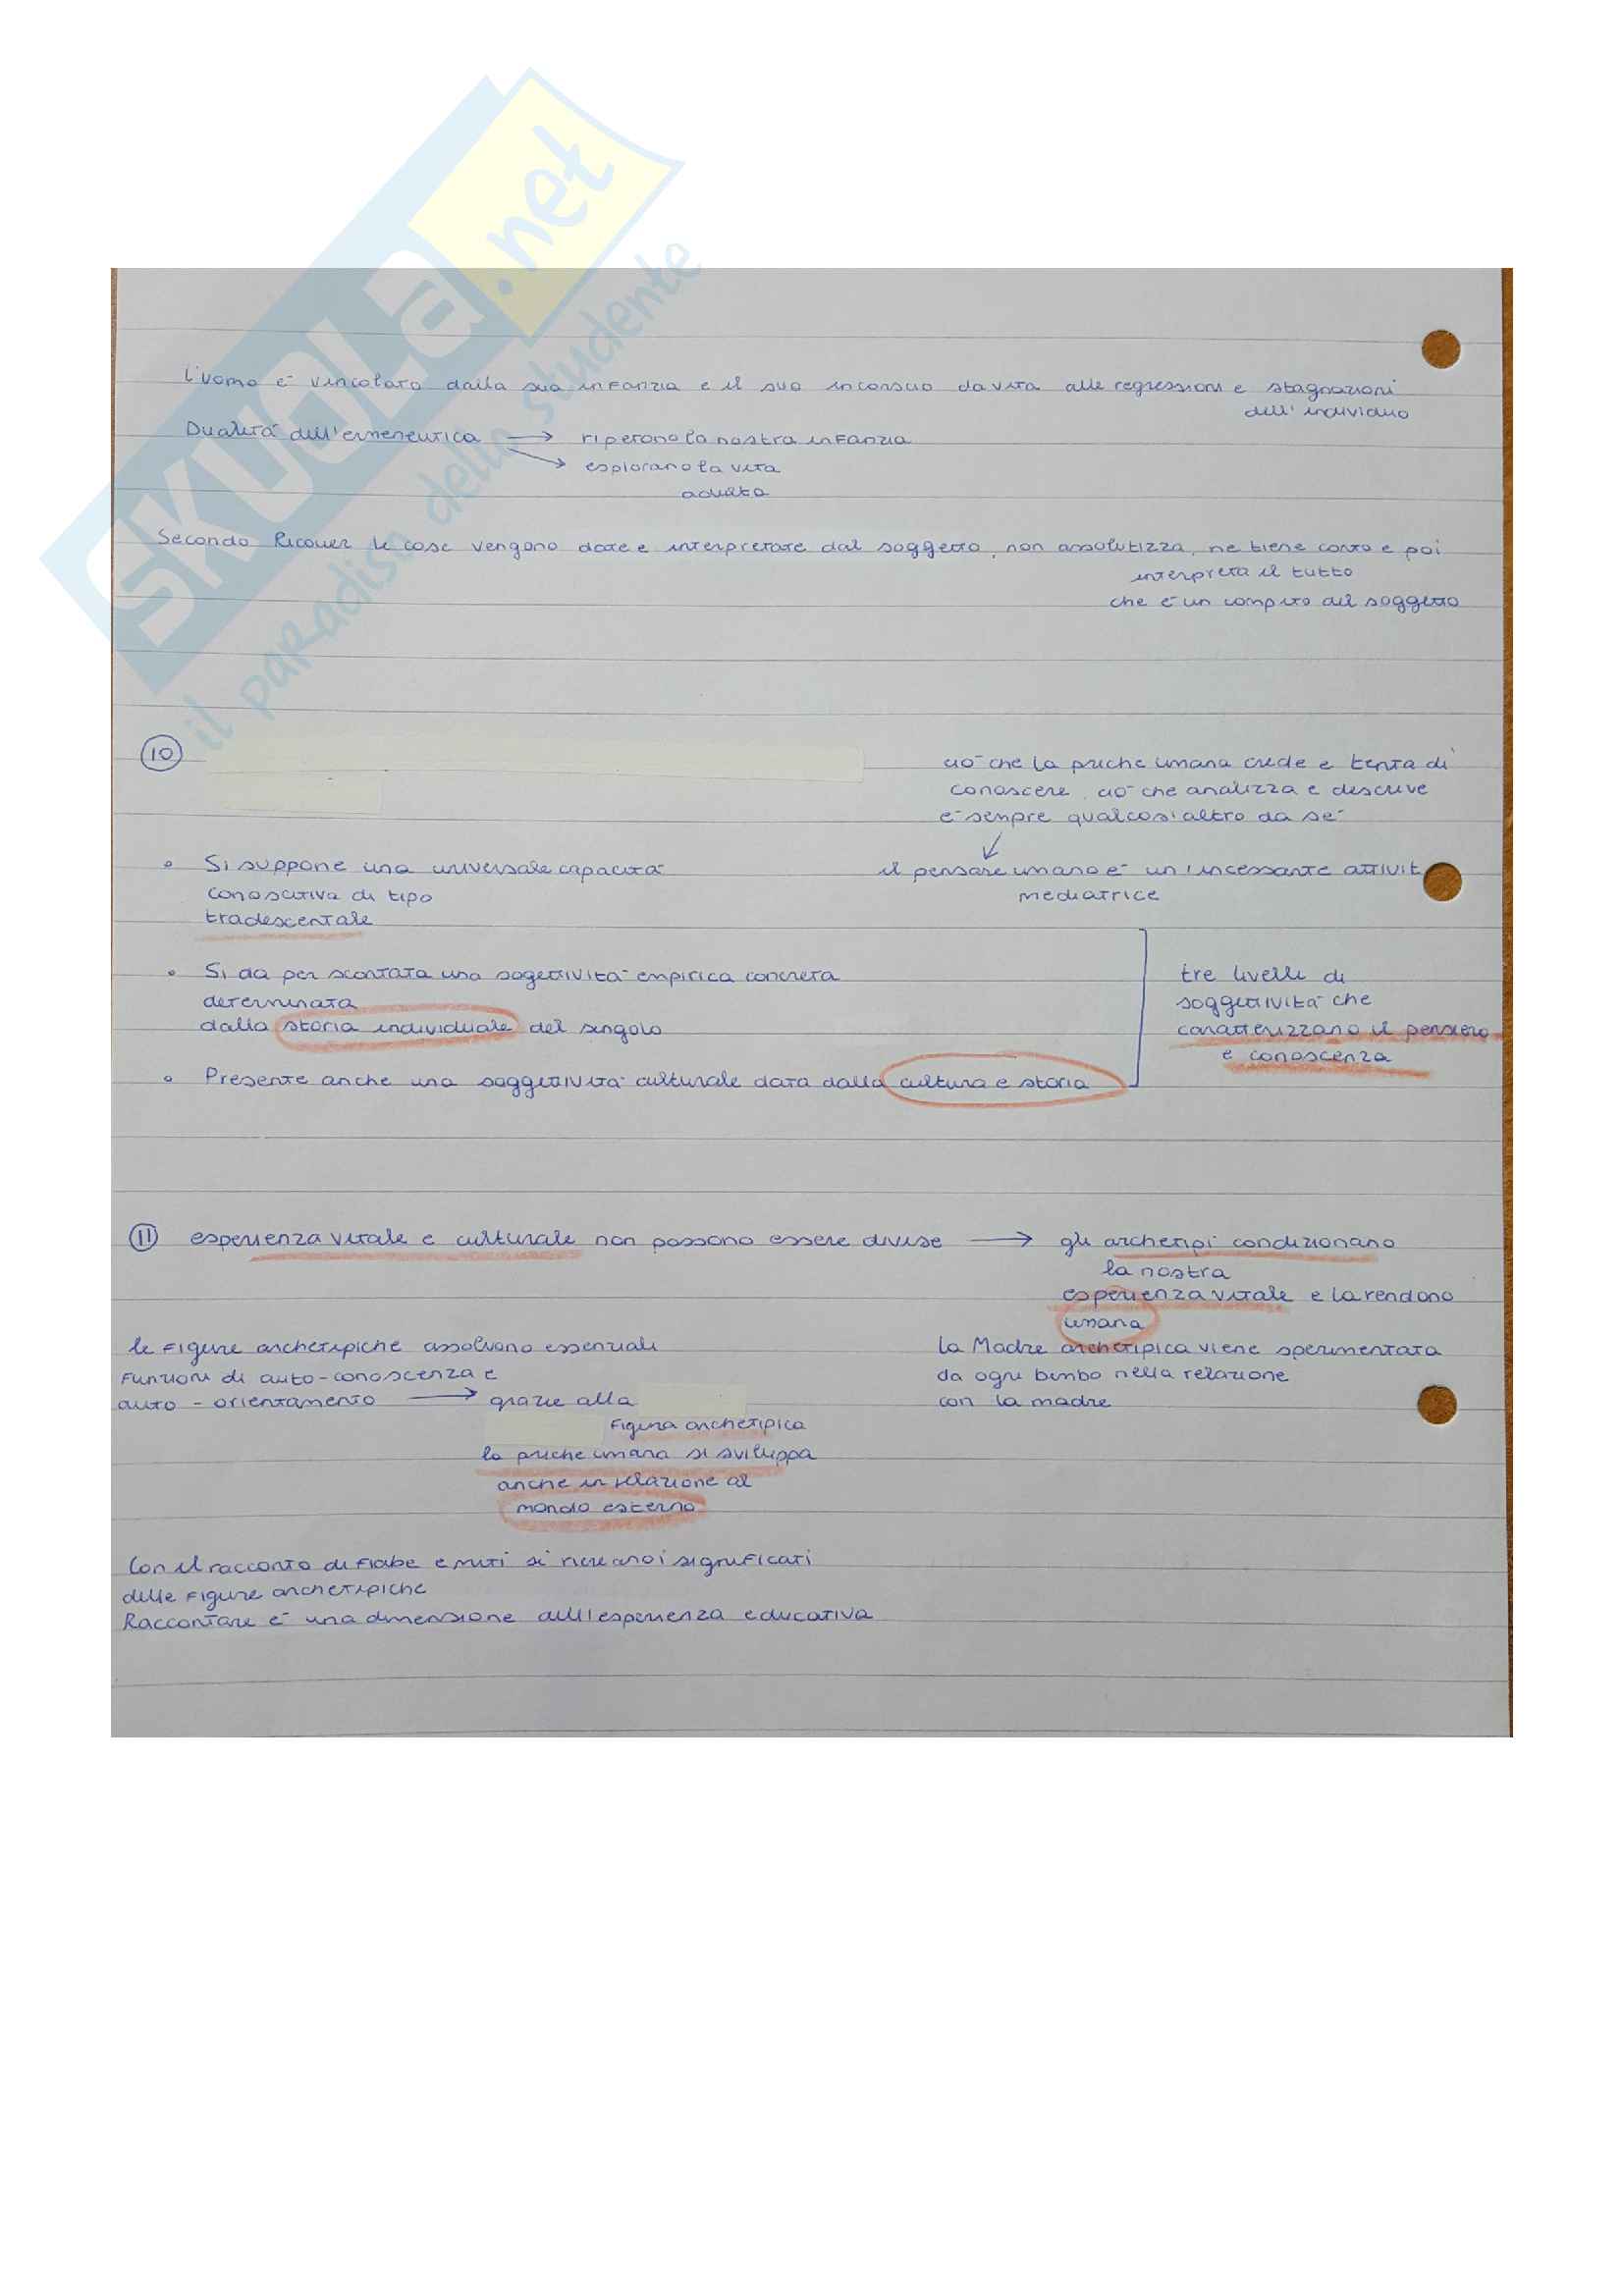 SKUOLA.net
il paradiso dello studente
L'uomo è vincolato dalla sua infanzia e il suo inconscio da vita alle regressioni e stagnazioni
dell'individuo
Dualità dell'ermeneutica → ripetono la nostra infanzia
→ esplorano la vita
adulta
Secondo Ricouer le cose vengono date e interpretate dal soggetto, non assolutizza, ne tiene conto e poi
interpreta il tutto
che è un compito del soggetto
10
ciò che la psiche umana crede e tenta di
conoscere, ciò che analizza e descrive
è sempre qualcos'altro da sé
↓
• Si suppone una universale capacità
conoscitiva di tipo
tradescentale
il pensare umano è un'incessante attivit
mediatrice
• Si da per scontata una sogettività empirica concreta
determinata
dalla storia individuale del singolo
• Presente anche una soggettività culturale data dalla cultura e storia
tre livelli di
soggettività che
caratterizzano il pensiero
e conoscenza
11 esperienza vitale e culturale non possono essere divise → gli archetipi condizionano
la nostra
esperienza vitale e la rendono
umana
le figure archetipiche assolvono essenziali
funzioni di auto-conoscenza e
auto-orientamento → grazie alla
figura archetipica
la psiche umana si sviluppa
anche in relazione al
mondo esterno
la Madre archetipica viene sperimentata
da ogni bimbo nella relazione
con la madre
Con il racconto di fiabe e miti si ricreano i significati
delle figure archetipiche
Raccontare è una dimensione dell'esperienza educativa